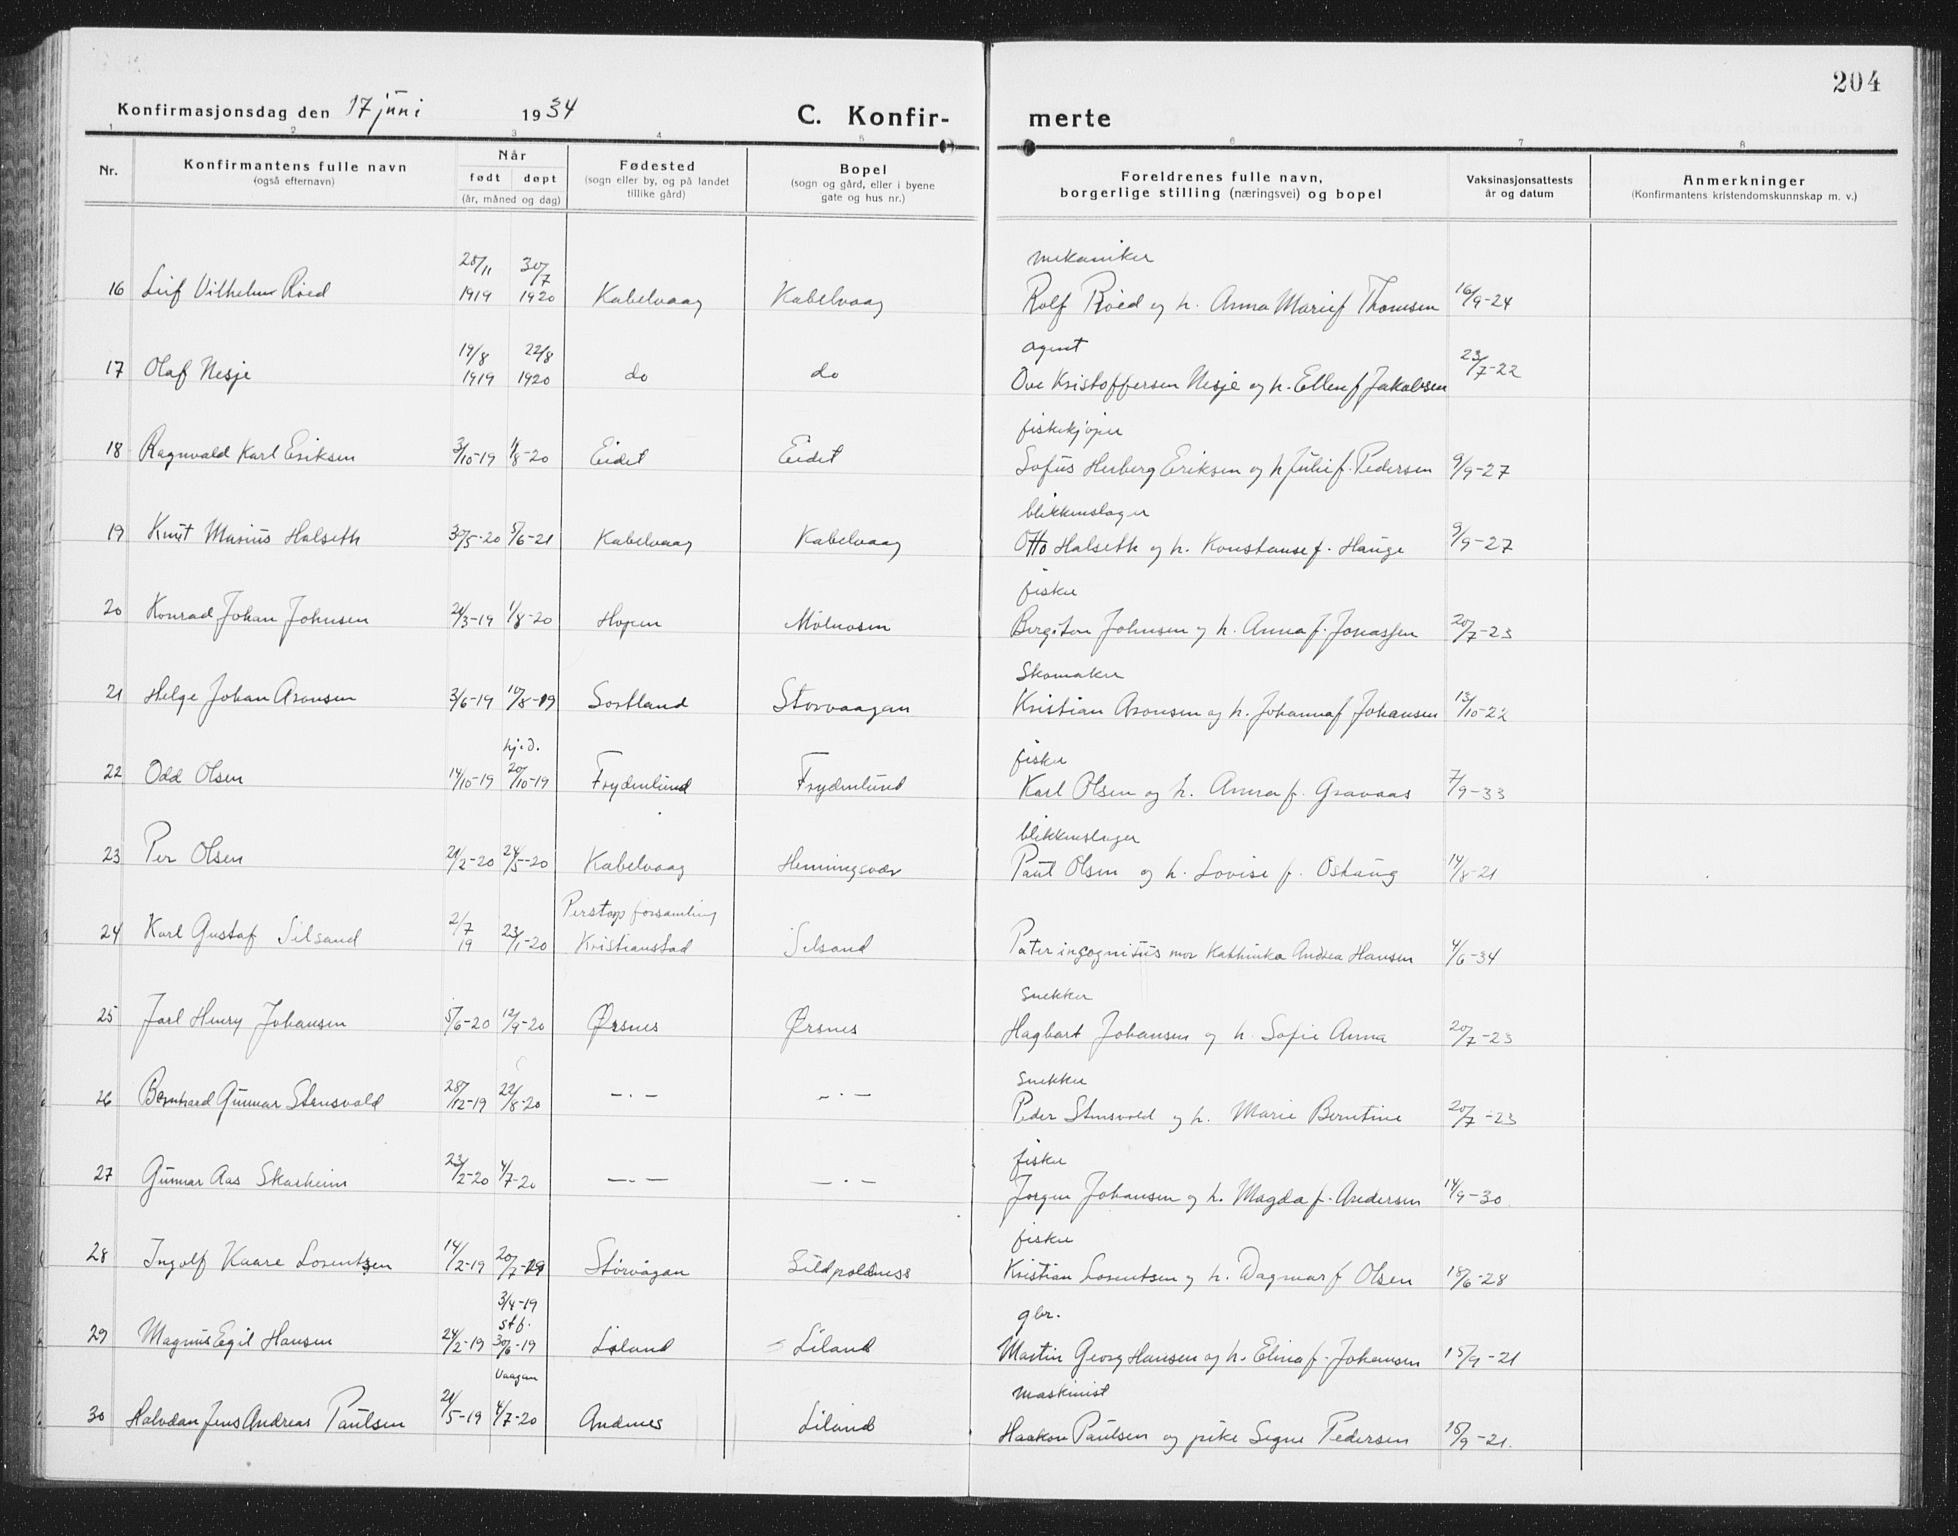 204
Konfirmasjonsdag den 17 juni 1934 C. Konfir- merte
1 2 3 4 5 6 7 8
Nr. Konfirmantens fulle navn (også efternavn) Når født døpt (år, måned og dag) Fødested (sogn eller by, og på landet tillike gård) Bopel (sogn og gård, eller i byene gate og hus nr.) Foreldrenes fulle navn, borgerlige stilling (næringsvei) og bopel Vaksinasjonsattests år og datum Anmerkninger (Konfirmantens kristendomskunnskap m. v.)
28/11 30/7 mekaniker
16 Leif Vilhelm Röed 1919 1920 Kabelvaag Kabelvaag Rolf Röed og h. Anna Marie f Thomsen 16/9-24
19/8 22/8 agent
17 Olaf Nesje 1919 1920 do do Ove Kristoffersen Nesje og h. Ellen f Jakobsen 23/7-22
fiskekjøper
18 Ragnvald Karl Eriksen 3/10-19 1/8-20 Eidet Eidet Sofus Herberg Eriksen og h Julie f. Pedersen 9/9-27
blikkenslager
19 Knut Marius Halseth 30/5-20 5/6-21 Kabelvaag Kabelvaag Otto Halseth og h. Konstanse f. Hauge 9/9-27
fisker
20 Konrad Johan Johnsen 21/3-19 1/8-20 Hopen Mölnosen Bergiton Johnsen og h. Anna f. Jonassen 20/7-23
Skomaker
21 Helge Johan Aronsen 3/6-19 10/8-19 Sortland Storvaagan Kristian Aronsen og h. Johanna f Johansen 13/10-22
hj.d. fisker
22 Odd Olsen 14/10-19 20/10-19 Frydenlund Frydenlund Karl Olsen og h. Anna f. Gravaas 7/9-33
blikkenslager
23 Per Olsen 21/2-20 24/5-20 Kabelvaag Henningsvær Paul Olsen og h. Lovise f. Oshaug 14/8-21
Perstorp forsamling
24 Karl Gustaf Silsand 2/7 19 23/1-20 Kristianstad Silsand Pater incognitus mor Kathinka Andrea Hansen 4/6-34
Snekker
25 Jarl Henry Johansen 5/6-20 12/9-20 Ørsnes Ørsnes Hagbart Johansen og h. Sofie Anna 20/7-23
Snekker
26 Bernhard Gunnar Stensvold 28/12-19 22/8-20 — . — — . — Peder Stensvold og h. Marie Berntine 20/7-23
fisker
27 Gunnar Aas Skarheim 23/2-20 4/7-20 — . — — . — Jørgen Johansen og h. Magda f. Andersen 14/9-30
fisker
28 Ingolf Kaare Lorentsen 14/2-19 20/7-19 Störvågan Sildpoldness Kristian Lorentsen og h. Dagmar f Olsen 18/6-28
3/4-19
st f. gbr.
29 Magnus Egil Hansen 24/2-19 30/6-19 Liland Liland Martin Georg Hansen og h. Elina f. Johansen 15/9-21
Vaagan maskinist
30 Halvdan Jens Andreas Paulsen 21/5-19 4/7-20 Andenes Liland Haakon Paulsen og pike Signe Pedersen 15/9-21.